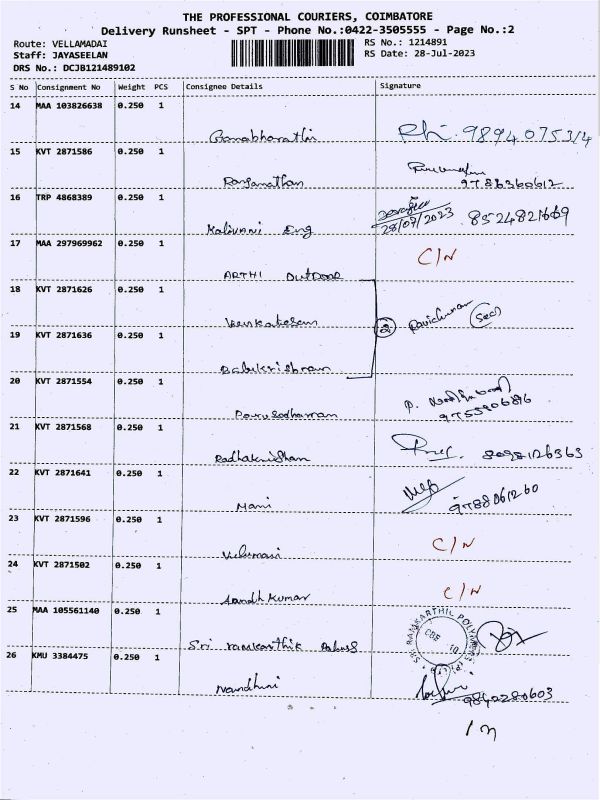 THE PROFESSIONAL COURIERS, COIMBATORE
Delivery Runsheet - SPT - Phone No.:0422-3505555 - Page No.:2
Route: VELLAMADAI
Staff: JAYASEELAN
DRS No.: DCJB121489102
RS No.: 1214891
RS Date: 28-Jul-2023
S No Consignment No Weight PCS Consignee Details Signature
14 MAA 103826638 0.250 1
Ramabharathi
15 KVT 2871586 0.250 1
Ranganathan 9788360612
16 TRP 4868389 0.250 1
Kalivani Eng 28/07/2023 8524821669
17 MAA 297969962 0.250 1 C/N
ARTHI OUTDOOR
18 KVT 2871626 0.250 1
Venkatesan 2 Ravichandran (Sec)
19 KVT 2871636 0.250 1
Balakrishnan
20 KVT 2871554 0.250 1
21 KVT 2871568 0.250 1
Radhakrishnan 8098126363
22 KVT 2871641 0.250 1
Mani 9788061260
23 KVT 2871596 0.250 1
Velumani C/N
24 KVT 2871502 0.250 1
C/N
25 MAA 105561140 0.250 1
Sri ramkarthik
SRI RAMKARTHIK POLYMER
26 KMU 3384475 0.250 1
Nandhini 9842280603